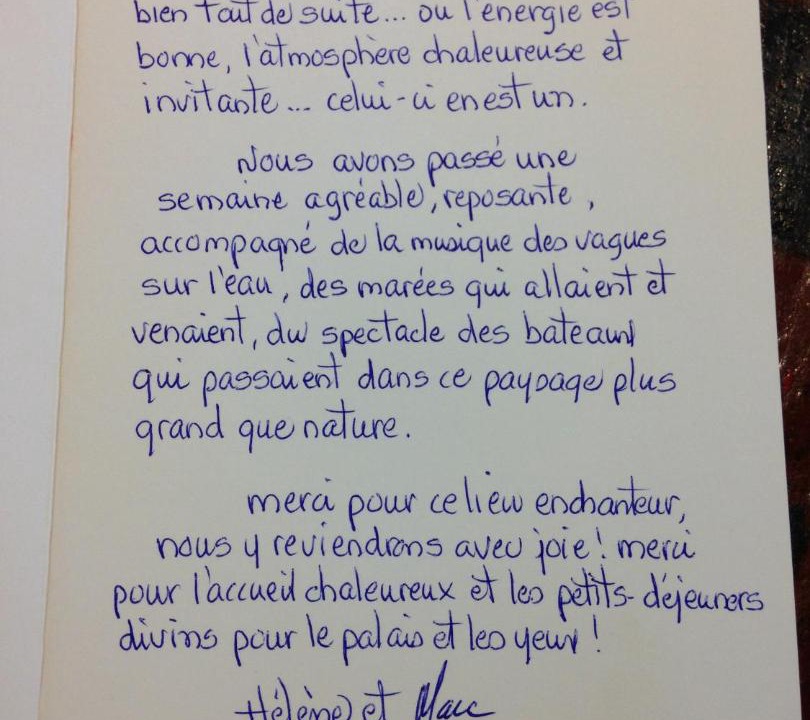 bien tout de suite... où l'énergie est
bonne, l'atmosphère chaleureuse et
invitante... celui-ci en est un.
Nous avons passé une
semaine agréable, reposante,
accompagné de la musique des vagues
sur l'eau, des marées qui allaient et
venaient, du spectacle des bateaux
qui passaient dans ce paysage plus
grand que nature.
merci pour ce lieu enchanteur,
nous y reviendrons avec joie! merci
pour l'accueil chaleureux et les petits-déjeuners
divins pour le palais et les yeux!
Hélène et Marc